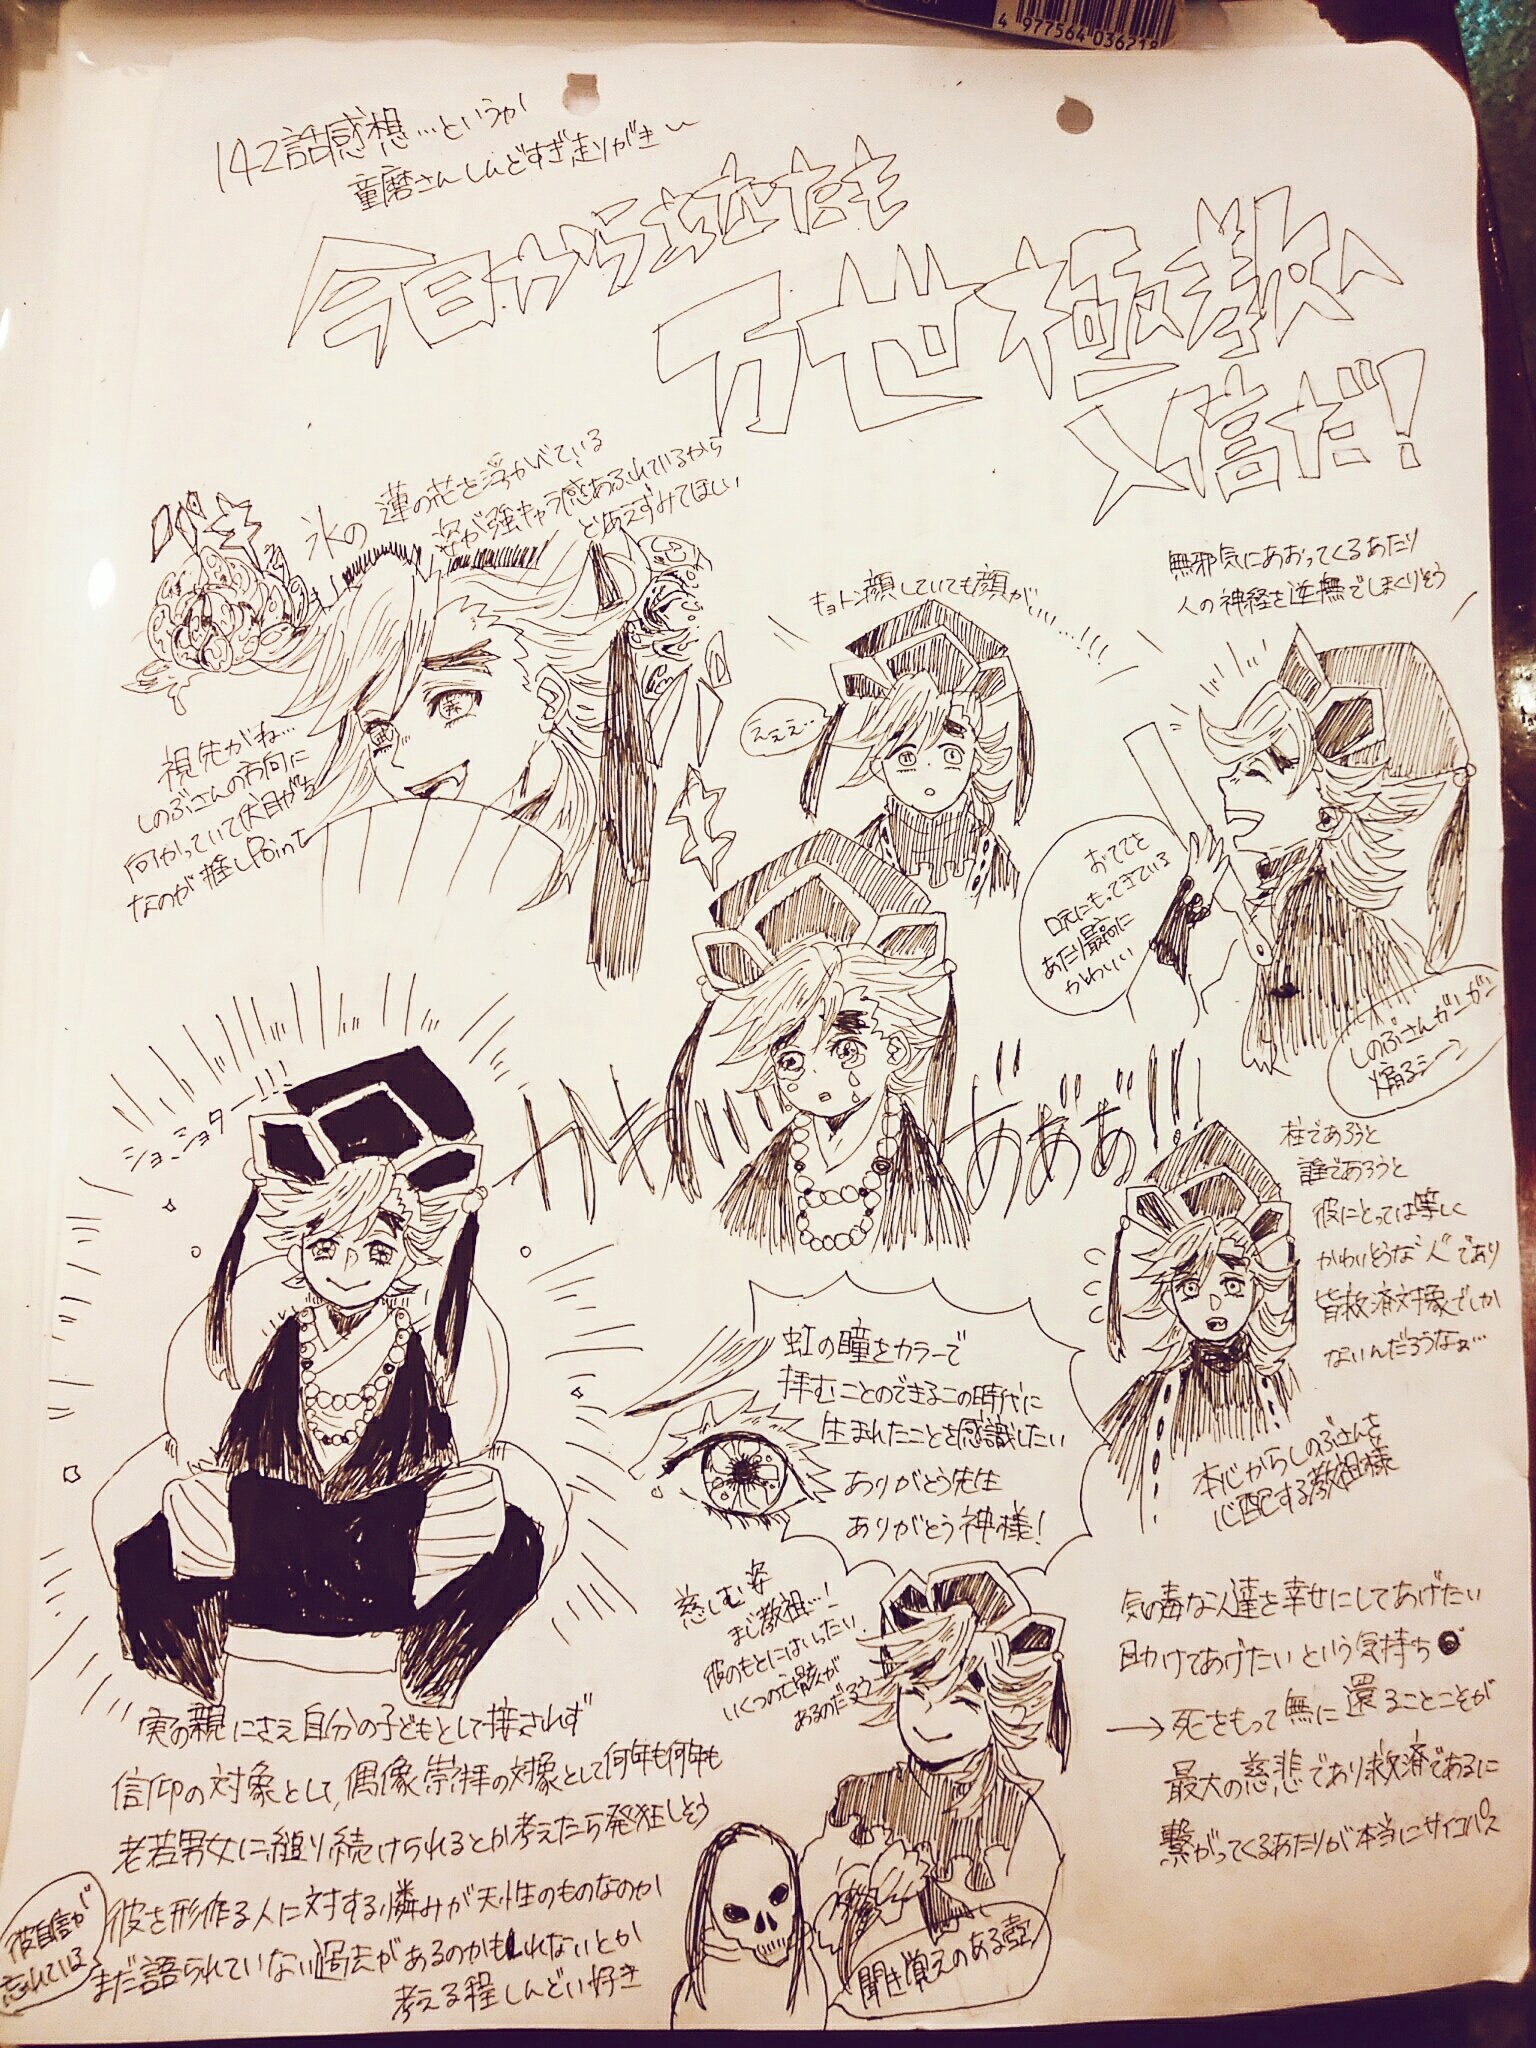 4 977564 036219
142話感想…というか
童磨さんしんどすぎ走りがき〜
今日からあなたも
万世極楽教へ
入信だ!
氷の蓮の花を浮かべている
姿が強キャラ感あふれているから
とりあえずみてほしい
視先がね…
しのぶさんの方向に
向かっていて伏目がち
なのが推しPoint
キョトン顔していても顔がいい…!!!
えええ…
無邪気にあおってくるあたり
人の神経を逆撫でしまくりそう
おててを
口元にもってきている
あたり最高に
かわいい
しのぶさんガンガン
煽るシーン
ショ、ショター!!!
あ゛あ゛あ゛!!!
柱であろうと
誰であろうと
彼にとっては等しく
かわいそうな"人"であり
皆救済対象でしか
ないんだろうなぁ…
本心からしのぶさんを
心配する教祖様
虹の瞳をカラーで
拝むことのできるこの時代に
生まれたことを感謝したい
ありがとう先生
ありがとう神様!
慈しむ姿
まじ教祖…!
彼のもとにはいったい
いくつの亡骸が
あるのだろう
気の毒な人達を幸せにしてあげたい
助けてあげたいという気持ち
→死をもって無に還ることこそが
最大の慈悲であり救済であるに
繋がってくるあたりが本当にサイコパス
実の親にさえ自分の子どもとして接されず
信仰の対象として、偶像崇拝の対象として何年も何年も
老若男女に縋り続けられるとか考えたら発狂しそう
彼を形作る人に対する憐みが天性のものなのか
まだ語られていない過去があるのかもしれないとか
考える程しんどい好き
彼自信が
忘れている
聞き覚えのある壺